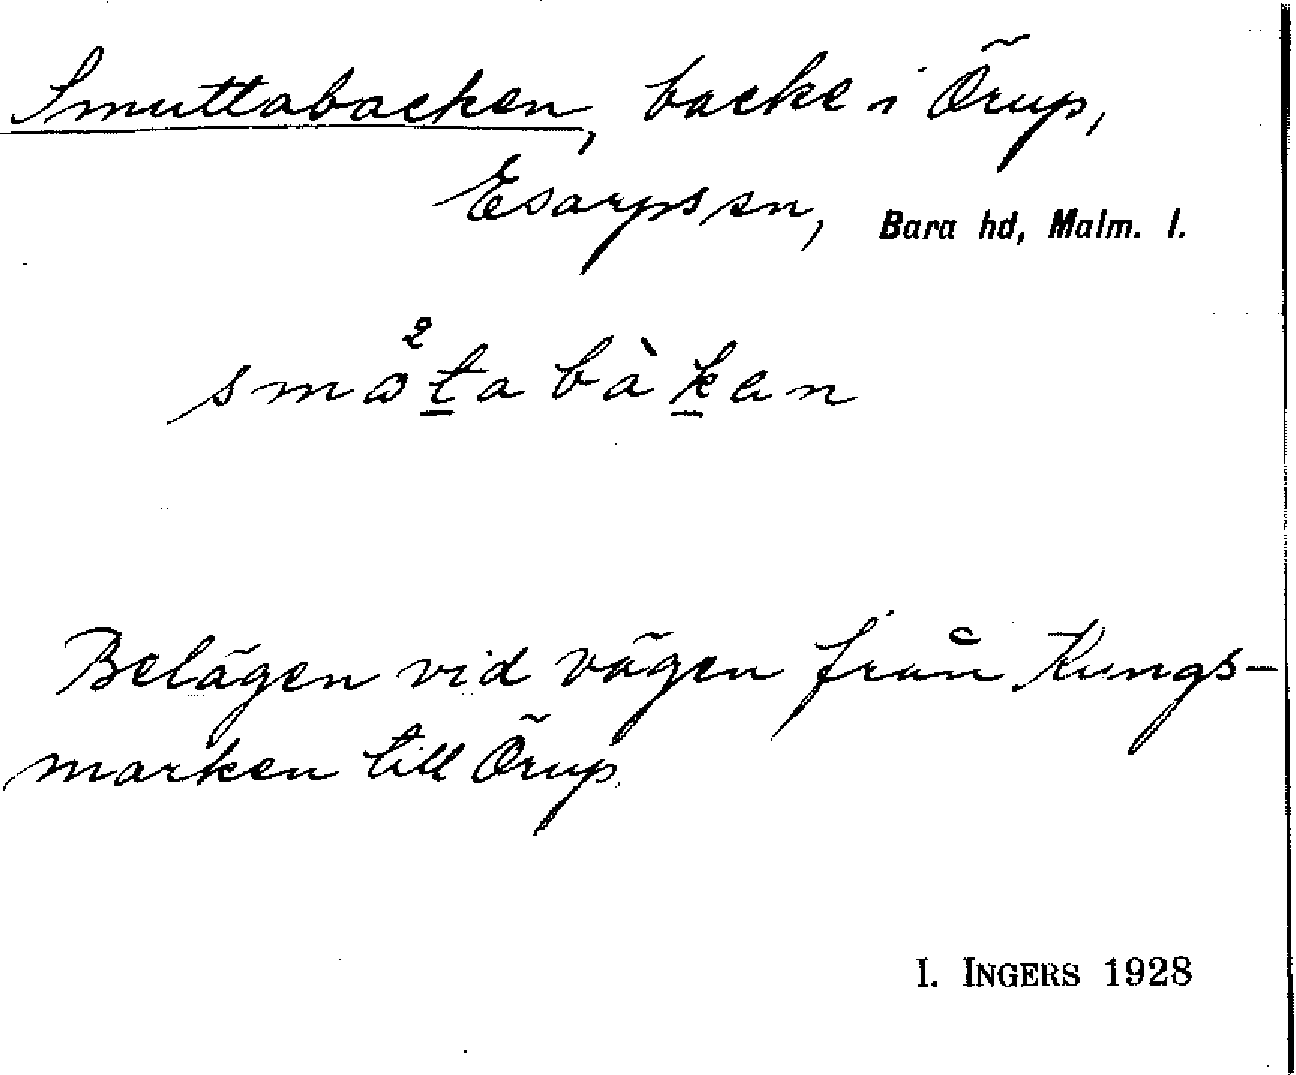 Smuttabacken, backe i Örup,
Esarps sn, Bara hd, Malm. l.
smɷ²t̲a bàk̲an
Belägen vid vägen från Kungs-
marken till Örup.
I. INGERS 1928